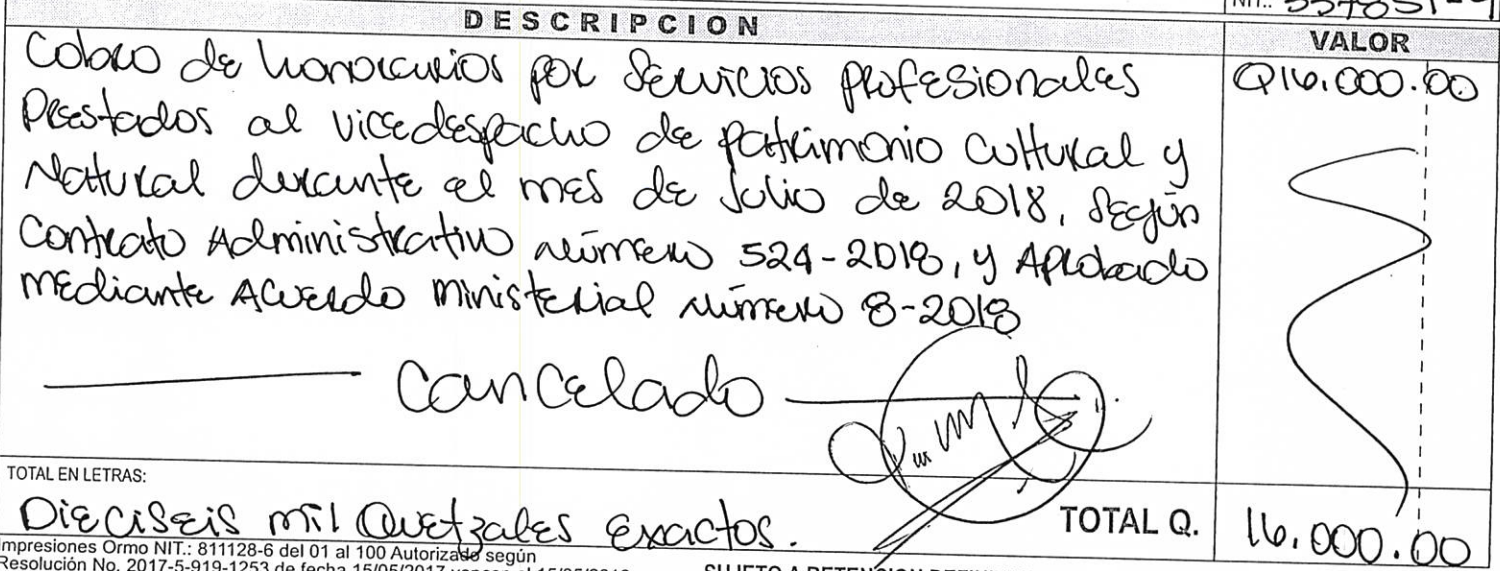 NIT.: 557851-9
DESCRIPCION
VALOR
Cobro de honorarios por Servicios profesionales Q16.000.00
Prestados al vicedespacho de patrimonio cultural y
Natural durante el mes de Julio de 2018, Según
Contrato Administrativo número 524-2018, y Aprobado
mediante Acuerdo ministerial número 8-2018
Cancelado
TOTAL EN LETRAS:
Dieciseis mil Quetzales Exactos. TOTAL Q. 16.000.00
Impresiones Ormo NIT.: 811128-6 del 01 al 100 Autorizado según
Resolución No. 2017-5-919-1253 de fecha 15/05/2017